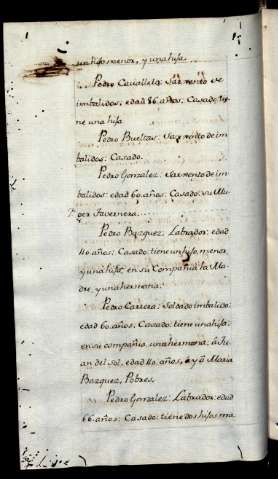 un hijo menor, y una hija.
Pedro Cavallero: Sarmento de
imbalidos: edad 56 años: Casado, tie
ne una hija
Pedro Bueltas: Sarmento de im
balidos: Casado.
Pedro Gonzalez: Sarmento de im
balidos: edad 60 años: Casado: su Mu
ger Tavernera....
Pedro Bazquez: Labrador: edad
40 años: Casado: tiene un hijo menor,
y una hija, en su Compañia la Ma
dre, y una hermana:
Pedro Carrera: Soldado imbalido:
edad 60 años: Casado: tiene una hija:
en su compañia, una hermana, â Ju
an del Sol, edad 40 años, y â Maria
Bazquez, Pobres.
Pedro Gonzalez: Labrador: edad
66 años: Casado: tiene dos hijos ma